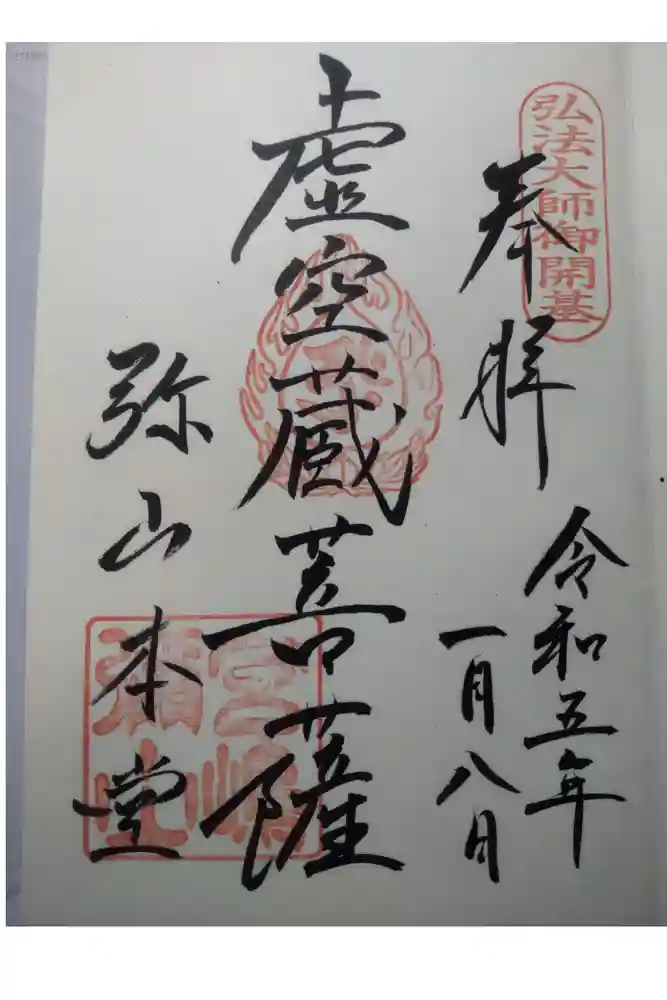 弘法大師御開基
奉拝
令和五年
一月八日
虚空蔵菩薩
弥山本堂
宮嶋
彌山